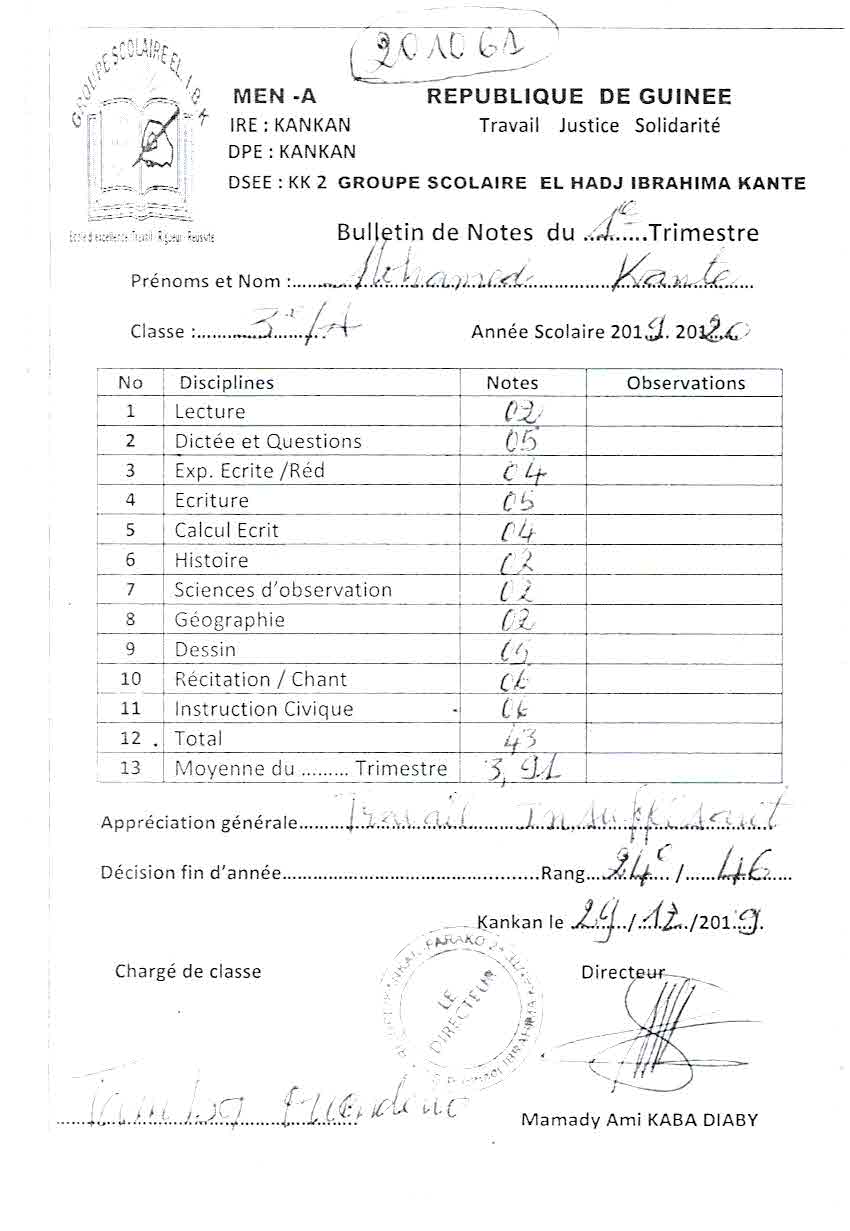 201061
GROUPE SCOLAIRE EL. I. B. K
MEN -A REPUBLIQUE DE GUINEE
IRE : KANKAN Travail Justice Solidarité
DPE : KANKAN
DSEE : KK 2 GROUPE SCOLAIRE EL HADJ IBRAHIMA KANTE
Ecole d'excellence Travail - Rigueur - Réussite
Bulletin de Notes du ...1e.....Trimestre
Prénoms et Nom :......Mohamed......Kante......
Classe :......3e/A...... Année Scolaire 2019. 2020
No Disciplines Notes Observations
1 Lecture 02
2 Dictée et Questions 05
3 Exp. Ecrite /Réd 04
4 Ecriture 05
5 Calcul Ecrit 04
6 Histoire 02
7 Sciences d'observation 02
8 Géographie 02
9 Dessin 05
10 Récitation / Chant 06
11 Instruction Civique 06
12 . Total 43
13 Moyenne du ......... Trimestre 3,91
Appréciation générale......Travail Insuffisant......
Décision fin d'année......Rang...24e.../...46...
Kankan le ...29.../...12.../2019.
Chargé de classe Directeur
LE DIRECTEUR
Tamba
Mamady Ami KABA DIABY